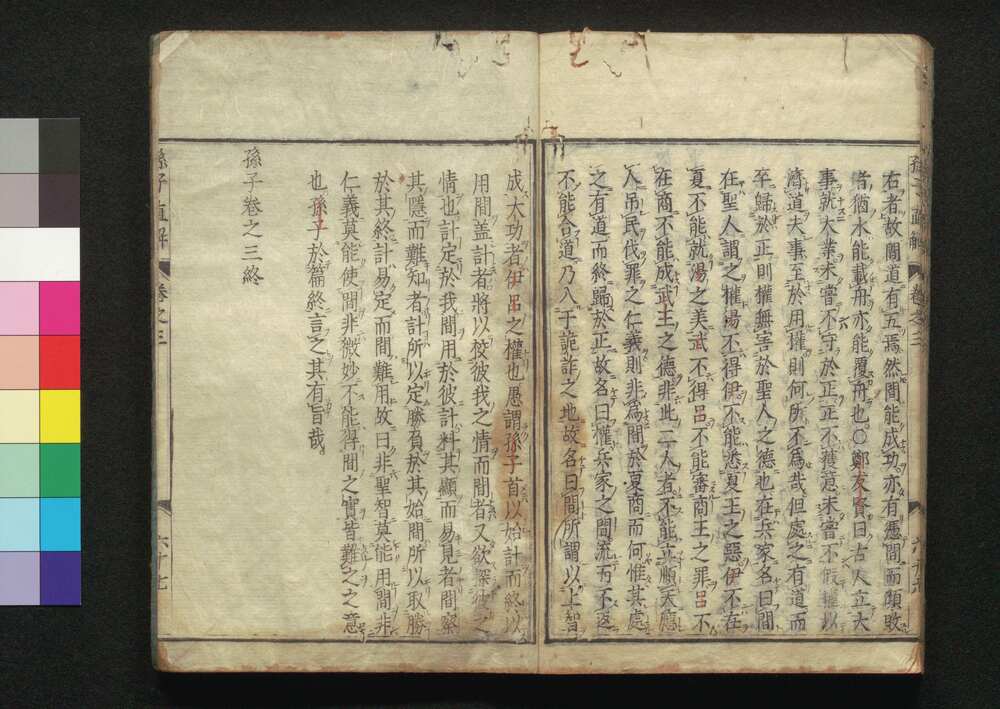 右者故間道有五焉然間能成功亦有憑間而傾敗
者猶水能載舟亦能覆舟也○鄭友賢曰古人立大
事就大業未嘗不守於正正不獲意未嘗不假權以
濟道夫事至於用權則何所不爲哉但處之有道而
卒歸於正則權無害於聖人之德也在兵家名曰間
在聖人謂之權湯不得伊不能悉夏王之惡伊不在
夏不能就湯之美武不得呂不能審商王之罪呂不
在商不能成武王之德非此二人者不能立順天應
人吊民伐罪之仁義則非爲間於夏商而何惟其處
之有道而終歸於正故名曰權兵家之間流而不返
不能合道乃入于詭詐之地故名曰間所謂以上智
成大功者伊呂之權也愚謂孫子首以始計而終以
用間盖計者將以校彼我之情而間者又欲深彼之
情也計定於我間用於彼計料其顯而易見者間察
其隱而難知者計所以定勝負於其始間所以取勝
於其終計易定而間難用故曰非聖智莫能用間非
仁義莫能使間非微妙不能得間之實皆難之之意
也孫子於篇終言之其有旨哉
孫子卷之三終
孫子直解 卷之三 六十七